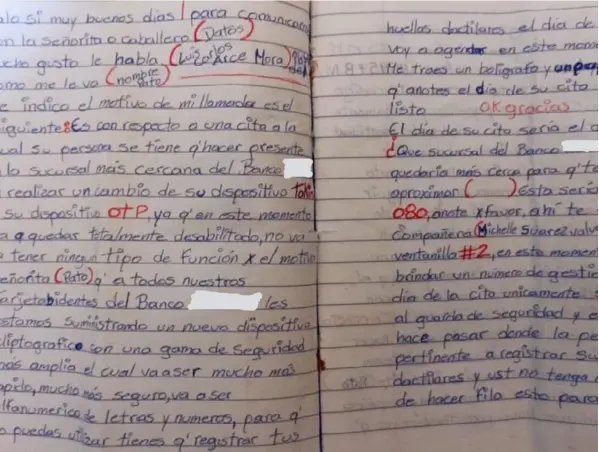 si muy buenos dias / para comunicarm
la señorita o caballero (Datos)
gusto le habla (Luis Carlos Arce Mora)
me le va (nombre Pato)
indico el motivo de mi llamada es el
iguiente: Es con respecto a una cita a la
ual su persona se tiene q' hacer presente
la sucursal más cercana del Banco
realizar un cambio de su dispositivo
su dispositivo OTP, ya q' en este momento
a quedar totalmente desabilitado, no va
tener ningun tipo de función x el motivo
eñorita (Pato) q' a todos nuestros
arjetabidentes del Banco les
stamos suministrando un nuevo dispositivo
liptografico con una gama de seguridad
más amplia el cual va a ser mucho más
apido, mucho más seguro, va a ser
lfanumerico de letras y numeros, para q'
puedas utilizar tienes q' registrar tus
huellas dactilares el dia de
voy a agendar en este mom
Me traes un boligrafo y un pap
q' anotes el dia de su cita
listo OK gracias
El dia de su cita seria el
¿Que sucursal del Banco
quedaria más cerca para q' te
aproximar ( ) Esta seria
080, anote x favor, ahi te
compañera (Michelle Suarez valv
ventanilla #2, en este momen
brindar un numero de gestió
dia de la cita unicamente
al guarda de seguridad y e
hace pasar donde la pe
pertinente a registrar su
dactilares y ust no tenga
de hacer fila esto para